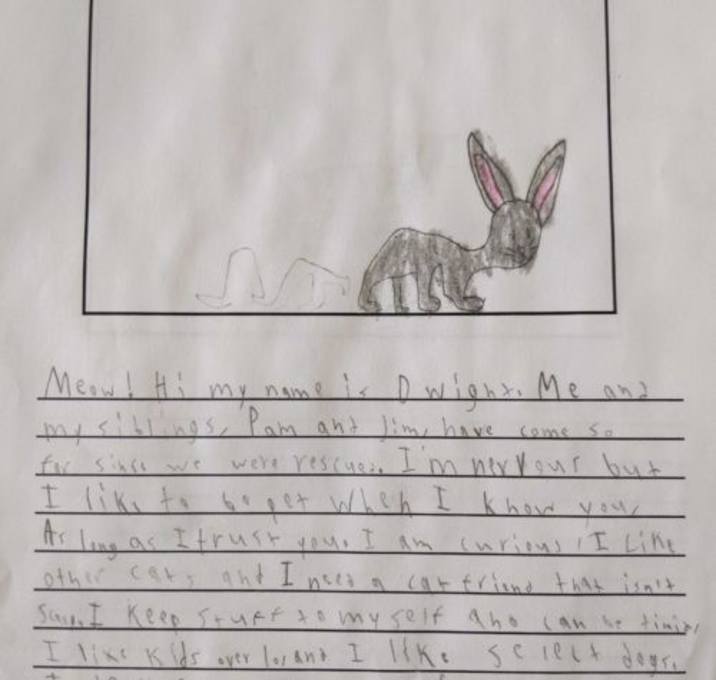 Meow! Hi my name is Dwight. Me and
my siblings, Pam and Jim, have come so
far since we were rescued. I'm nervous but
I like to be pet when I know you,
As long as I trust you. I am curious, I Like
other cats and I need a cat friend that isn't
I keep stuff to myself and can be timid,
I like kids over 10, and I like select dogs.